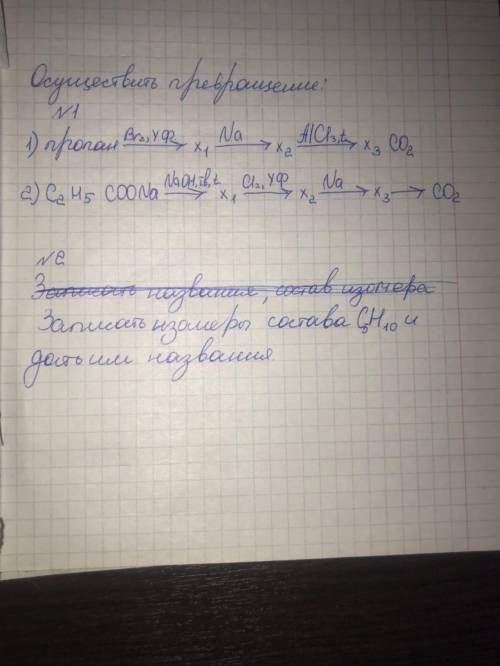 Осуществить превращение:
№1
1) пропан Br₂, УФ → x₁ Na → x₂ AlCl₃, t → x₃ CO₂
2) C₂H₅COONa NaOH, тв, t → x₁ Cl₂, УФ → x₂ Na → x₃ → CO₂
№2
Записать названия, состав изомера
Записать изомеры состава C₅H₁₀ и
дать им названия.